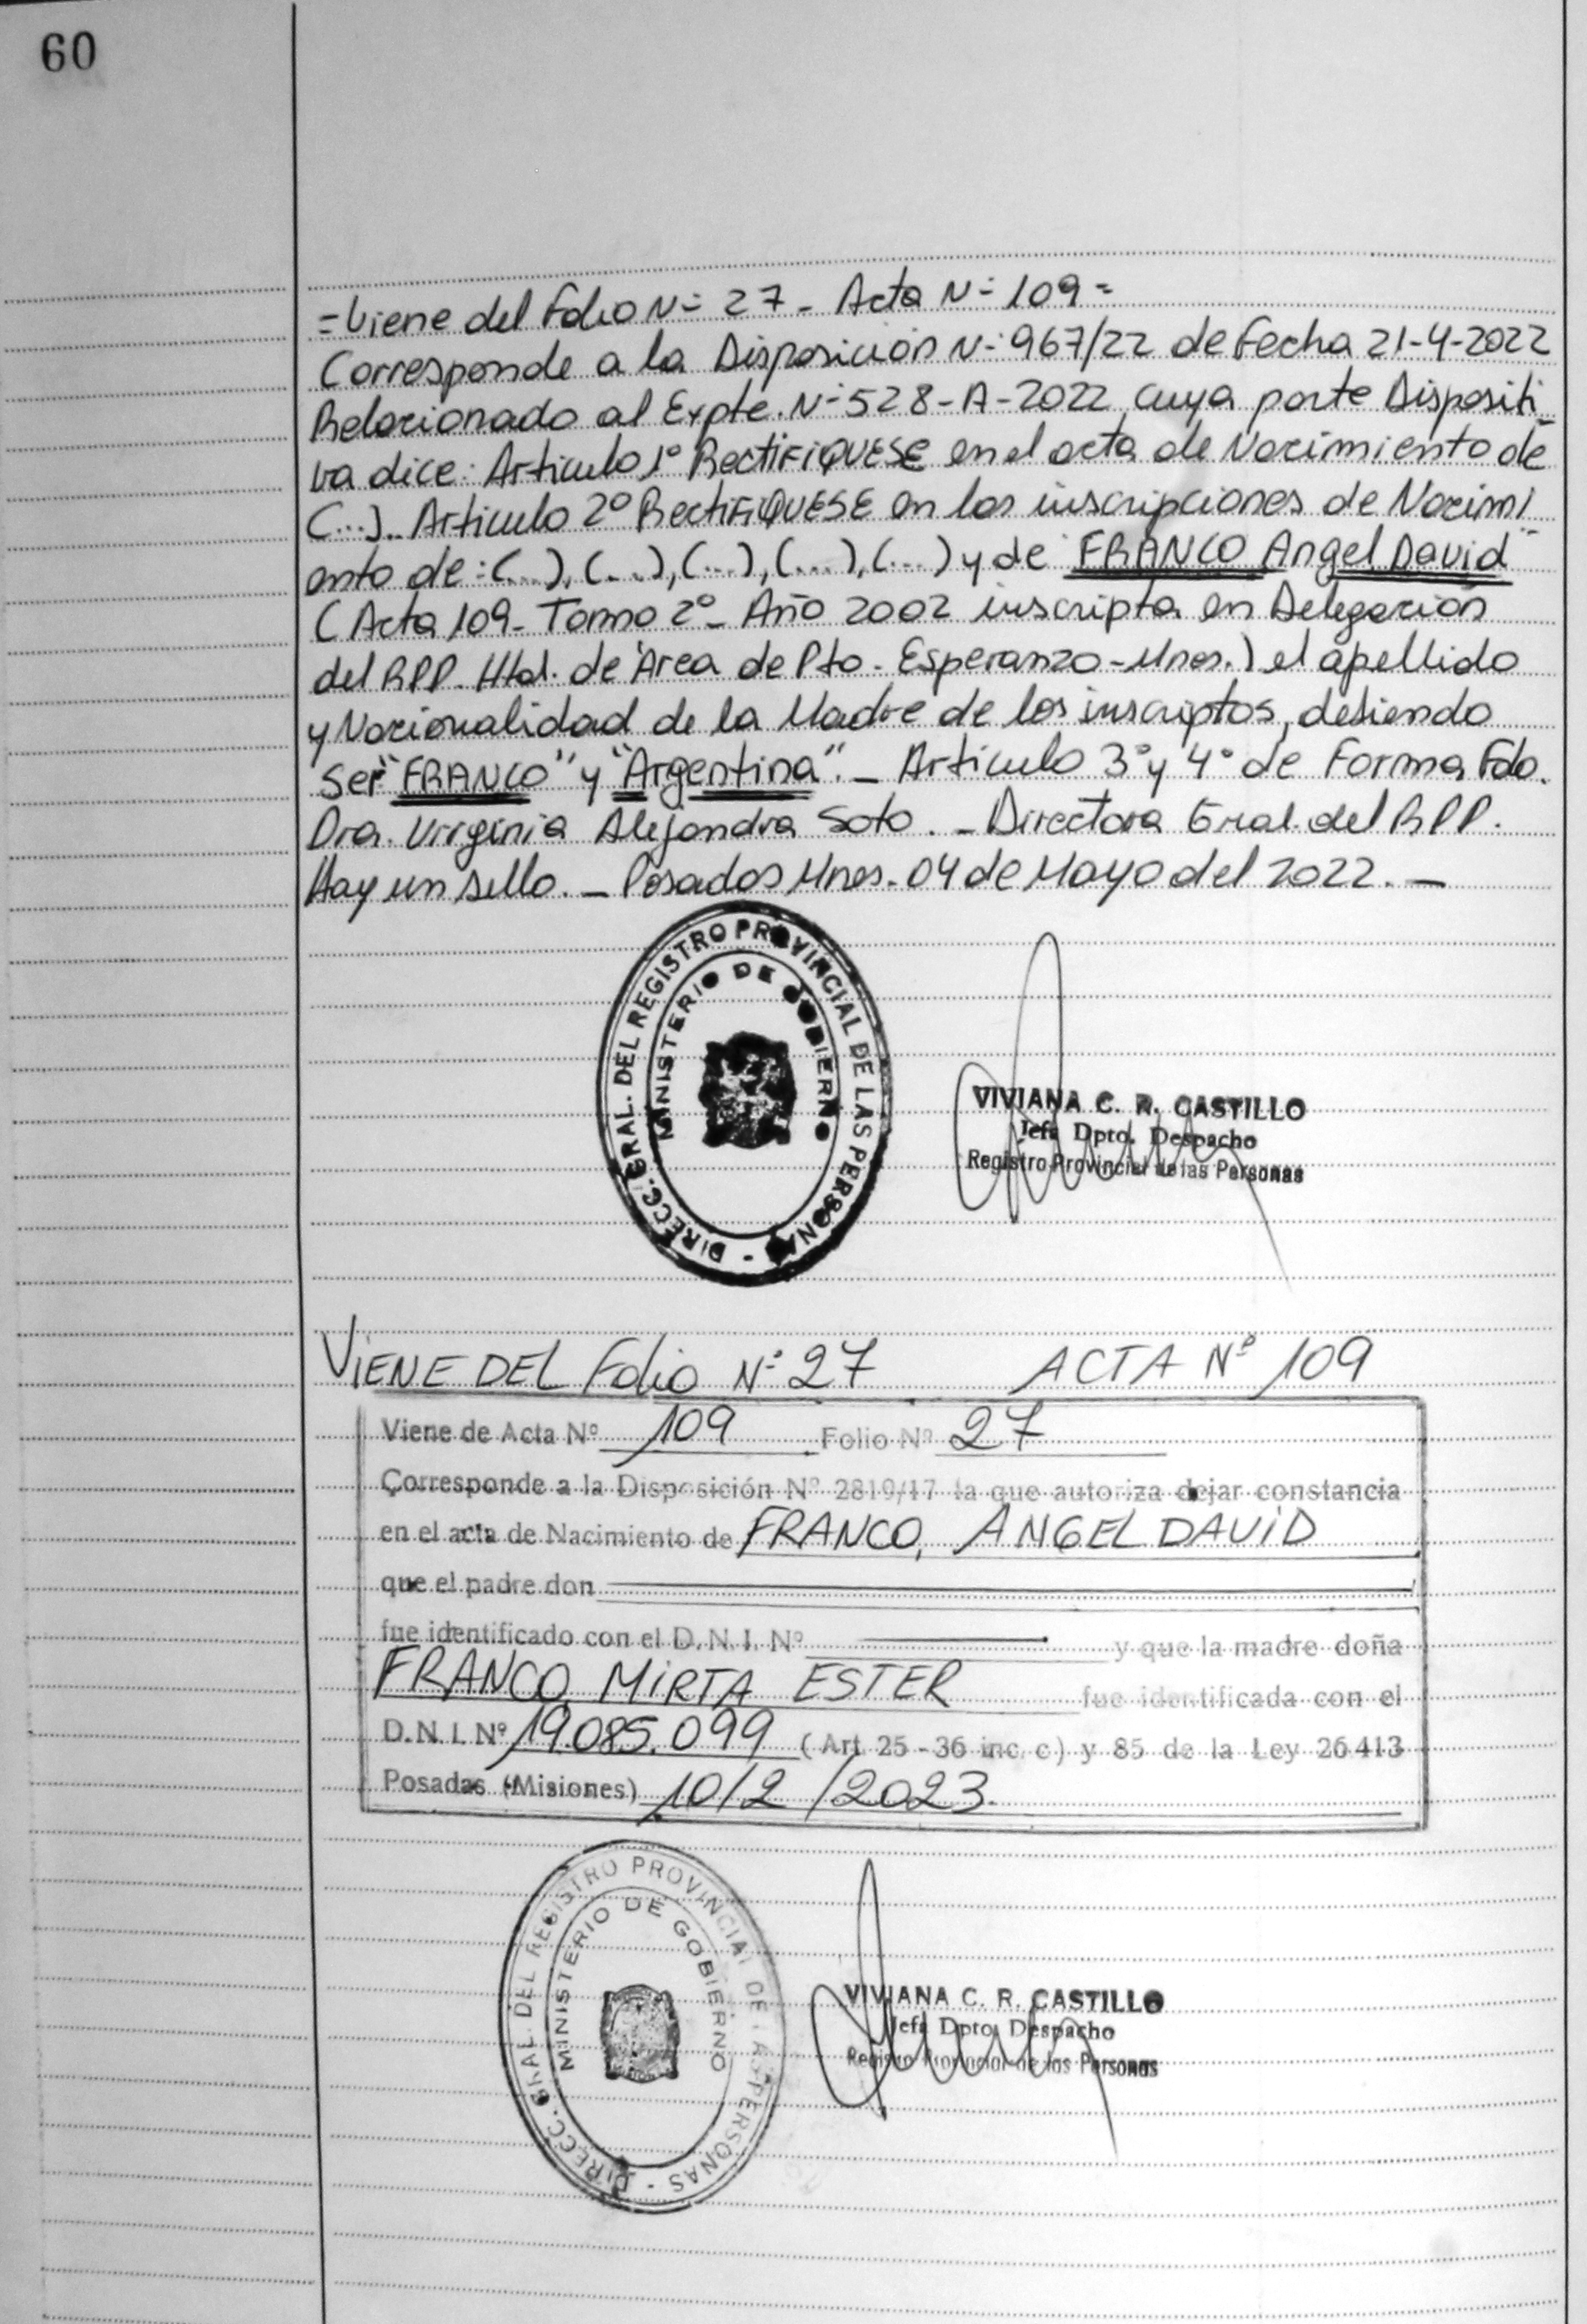 60
=Viene del Folio N= 27 - Acta N= 109=
Corresponde a la Disposición N=967/22 de fecha 21-4-2022
Relacionado al Expte. N=528-A-2022, cuya parte Dispositi
va dice: Articulo 1º RectiFiQUESE en el acta de Nacimiento de
(...). Articulo 2º RectiFiQUESE en las inscripciones de Nacimi
ento de: (...), (...), (...), (...), (...) y de "FRANCO Angel David"
(Acta 109- Tomo 2º- Año 2002 inscripta en Delegación
del RPP. Htal. de Area de Pto. Esperanza-Mnes.) el apellido
y Nacionalidad de la Madre de los inscriptos, debiendo
Ser "FRANCO" y "Argentina". - Articulo 3º y 4º de Forma Fdo.
Dra. Virginia Alejandra Soto. - Directora Gral. del RPP.
Hay un sello. - Posadas Mnes. 04 de Mayo del 2022. -
DIRECC. GRAL. DEL REGISTRO PROVINCIAL DE LAS PERSONAS -
MINISTERIO DE GOBIERNO
VIVIANA C. R. CASTILLO
Jefa Dpto. Despacho
Registro Provincial de las Personas
VIENE DEL Folio Nº 27 ACTA Nº 109
Viene de Acta Nº 109 Folio Nº 27
Corresponde a la Disposición Nº 2819/17 la que autoriza dejar constancia
en el acta de Nacimiento de FRANCO, ANGEL DAViD
que el padre don
fue identificado con el D.N.I. Nº y que la madre doña
FRANCO, MiRTA ESTER fue identificada con el
D.N.I. Nº 19.085.099 (Art 25-36 inc. c) y 85 de la Ley 26413
Posadas (Misiones) 10/2/2023.
DIRECC. GRAL. DEL REGISTRO PROVINCIAL DE LAS PERSONAS -
MINISTERIO DE GOBIERNO
VIVIANA C. R. CASTILLO
Jefa Dpto. Despacho
Registro Provincial de las Personas